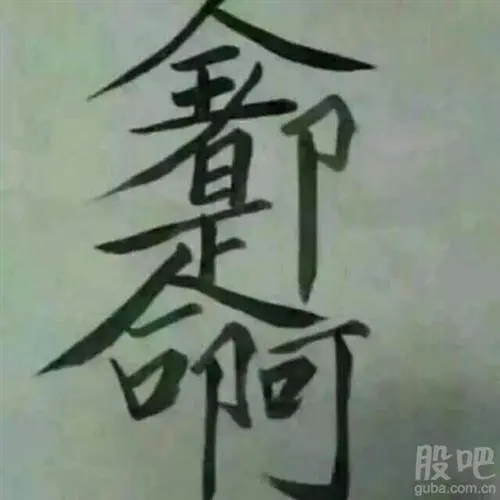 全都是命啊
股吧
guba.com.cn